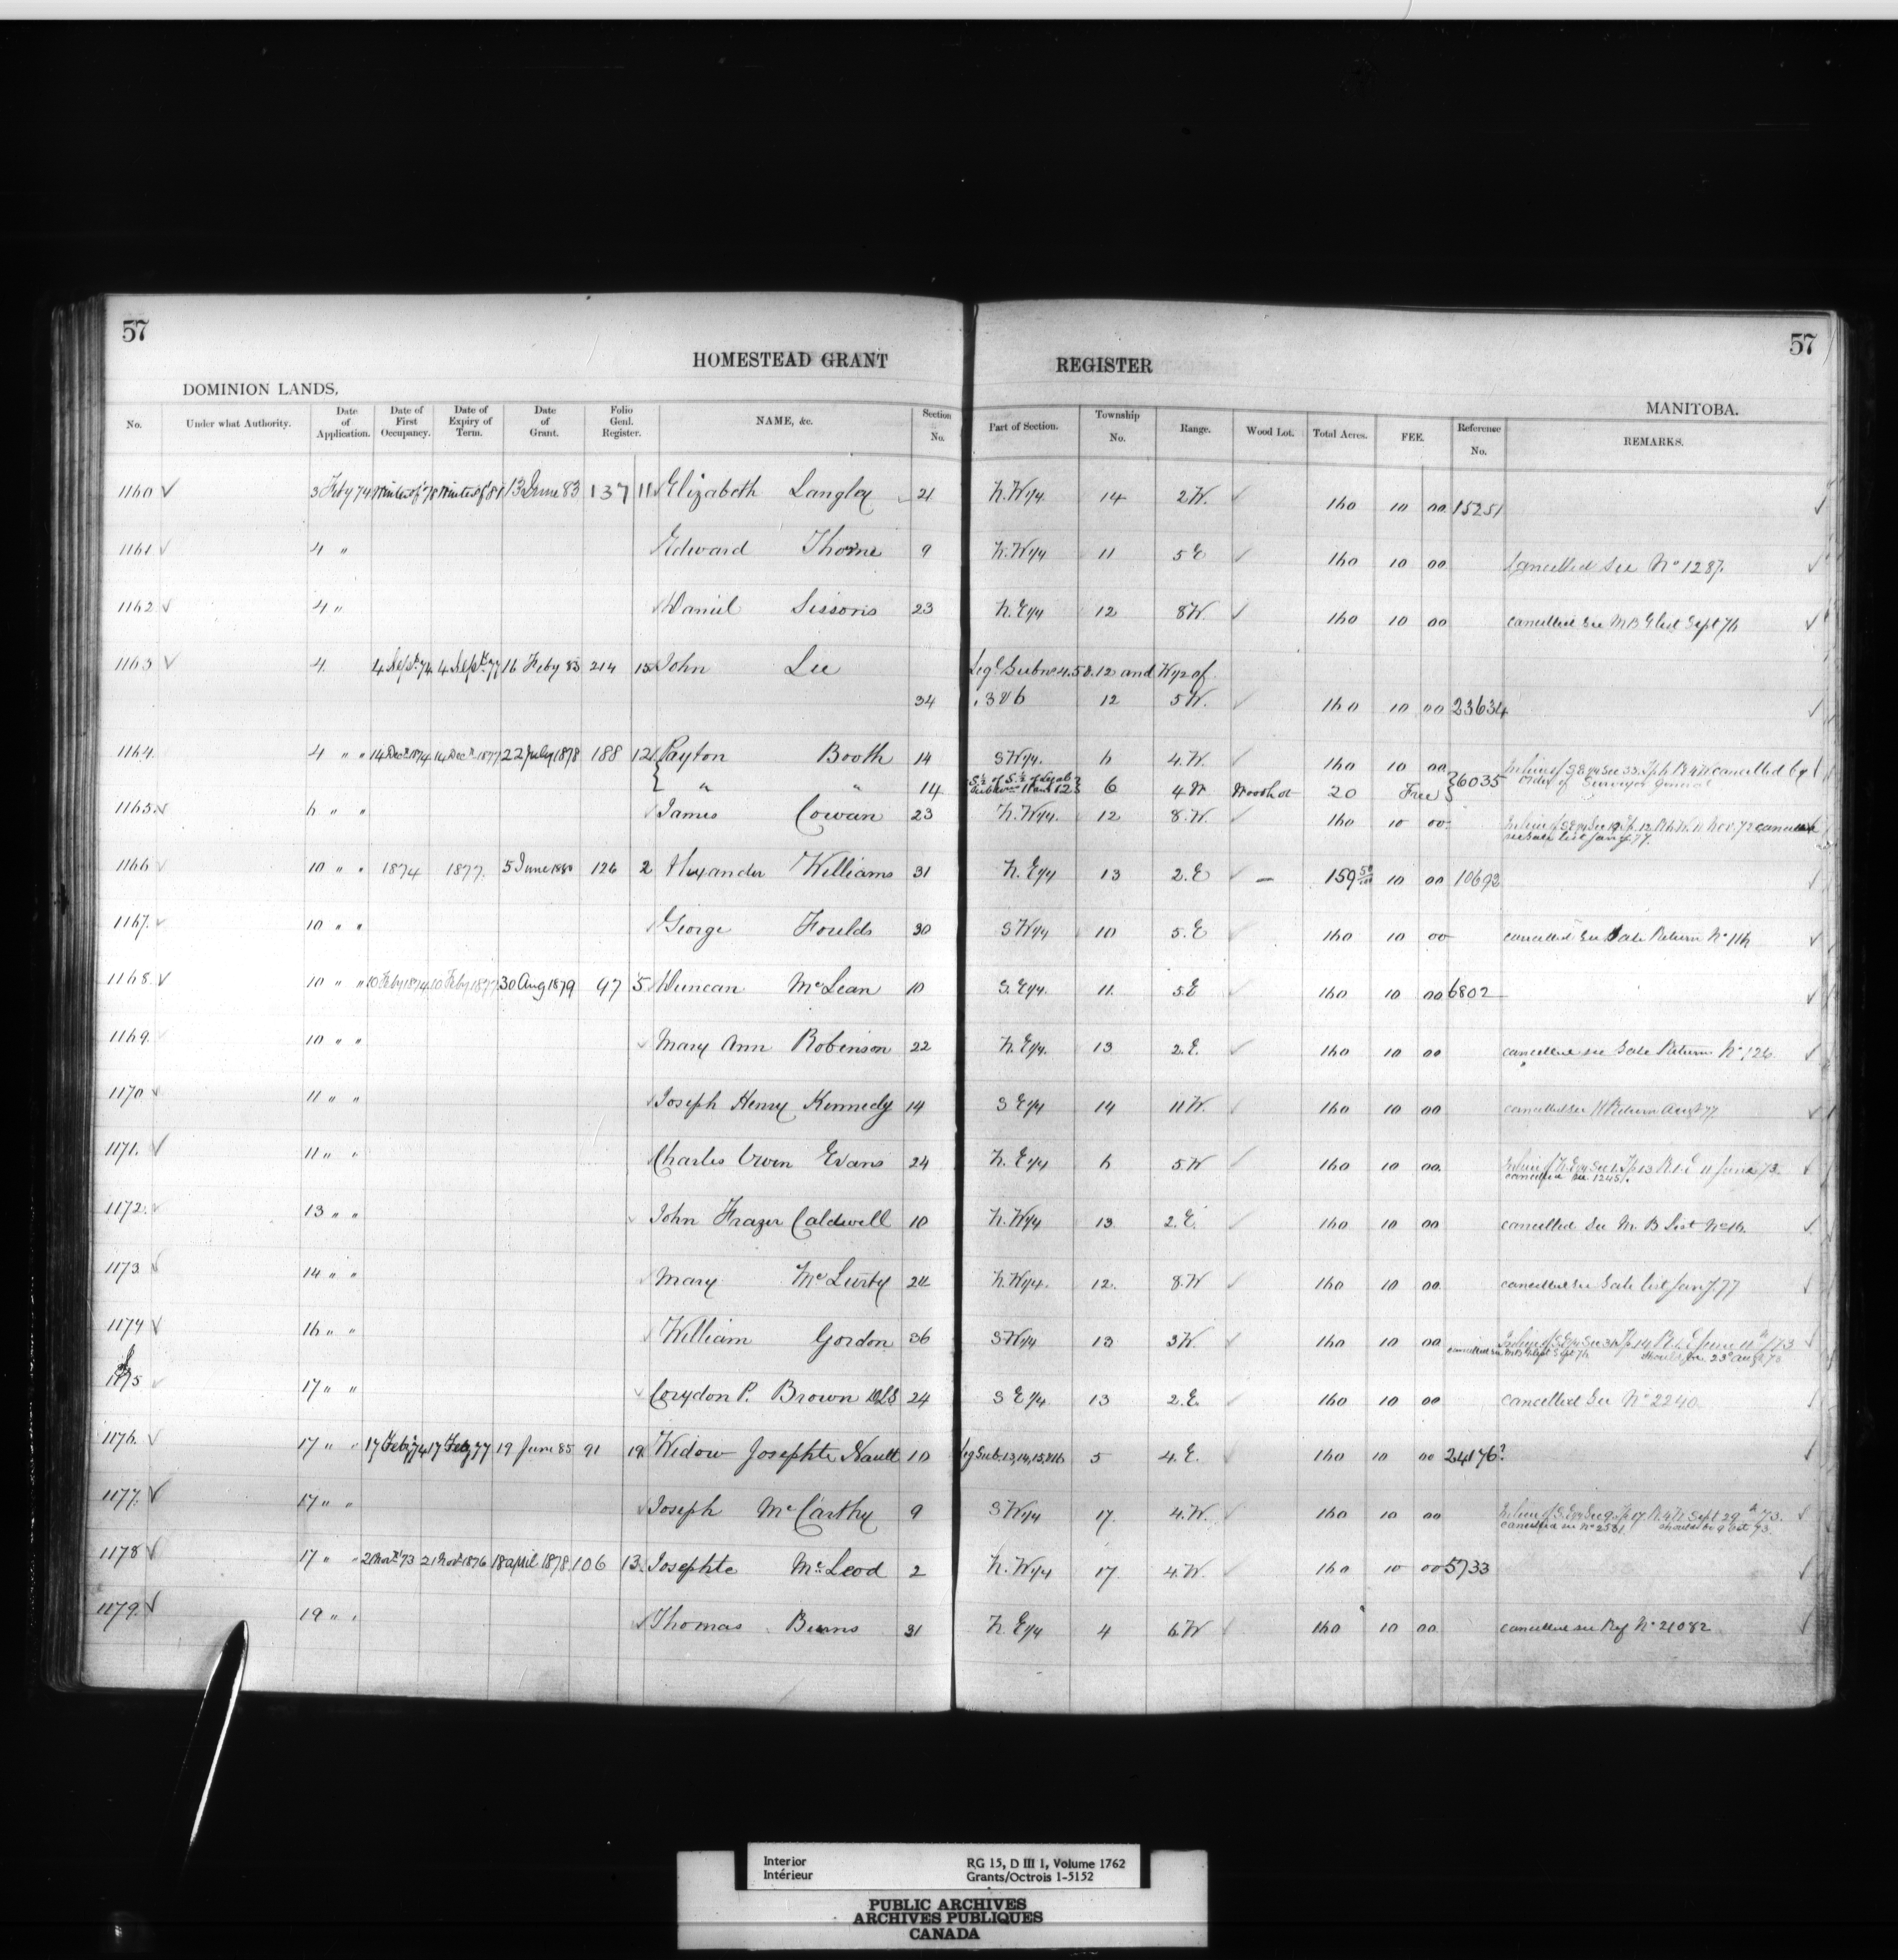 57
57
HOMESTEAD GRANT REGISTER
DOMINION LANDS.
MANITOBA.
No. Under what Authority. Date of Application. Date of First Occupancy. Date of Expiry of Term. Date of Grant. Folio Genl. Register. NAME, &c. Section No. Part of Section. Township No. Range. Wood Lot. Total Acres. FEE. Reference No. REMARKS.
1160 3 Feby 74 Winter of 78 Winter of 81 13 June 83 137 11 Elizabeth Langley 21 N.W 1/4 14 2 W. 160 10 00 15251
1161 4 " Edward Thorne 9 N.W 1/4 11 5 E 160 10 00 Cancelled See No 1287.
1162 4 " Daniel Sissons 23 N.E 1/4 12 8 W. 160 10 00 cancelled see M B List Sept 76
1163 4 4 Sept. 74 4 Sept. 77 16 Feby 83 214 15 John Lee Legl Subns 4.5 & 12 and W 1/2 of
34 3 & 6 12 5 W. 160 10 00 23634
1164 4 " " 14 Decr 1874 14 Decr 1877 22 July 1878 188 12 Payton Booth 14 S W 1/4. 6 4. W. 160 10 00 In lieu of S.E 1/4 Sec 33. Tp 6 R 4 W cancelled by
" " 14 S 1/2 of S 1/2 of Legal Subdivn 11 and 12 6 4 W Woodlot 20 Free 6035 Order of Surveyor General
1165 6 " " James Cowan 23 N.W 1/4. 12 8. W. 160 10 00 In lieu of S E 1/4 Sec 19 Tp. 12 R 6 W. 11 Nov. 72 cancelled
see Sale List Jany 77.
1166 10 " " 1874 1877. 5 June 1880 126 2 Alexander Williams 31 N. E 1/4 13 2. E 159 50/100 10 00 10692
1167. 10 " " George Foulds 30 S W 1/4 10 5. E 160 10 00 cancelled See Sale Return No 116
1168. 10 " " 10 Feby 1874 10 Feby 1877 30 Aug 1879 47 5 Duncan McLean 10 S. E 1/4. 11. 5 E 160 10 00 6802
1169. 10 " " Mary Ann Robinson 22 N. E 1/4. 13 2. E. 160 10 00 cancelled see Sale Return No 126
1170 11 " " Joseph Henry Kennedy 14 S E 1/4 14 11 W. 160 10 00 cancelled see Return Augt 77
1171. 11 " " Charles Owen Evans 24 N. E 1/4 6 5. W 160 10 00 In lieu of N. E 1/4 Sec 1. Tp 13 R. 1. E 11 June 73
cancelled see 1245.
1172. 13 " " John Frazer Caldwell 10 N. W 1/4 13 2. E. 160 10 00 cancelled See M. B List No 16
1173 14 " " Mary McLurty 24 N. W 1/4. 12. 8. W 160 10 00 cancelled see Sale List Jany 77
1174 16 " " William Gordon 36 S W 1/4 13 3 W. 160 10 00 In lieu of S. E 1/4 Sec 31 Tp 14 R. 1. E June 11th /73
cancelled see M B List Sept 76 should be 23d Aug 73
1175 17 " " Corydon P. Brown DLS 24 S E 1/4 13 2. E. 160 10 00 Cancelled See No 2240
1176. 17 " " 17 Feby 74 17 Feby 77 19 June 85 91 19 Widow Josephte Nault 10 Leg Sub. 13, 14, 15, & 16 5 4. E. 160 10 00 24176?
1177. 17 " " Joseph McCarthy 9 S W 1/4 17. 4. W. 160 10 00 In lieu of S. E 1/4 Sec 9 Tp 17 R. 4 W Sept 29th 73.
cancelled see No 2531 should be 9 Oct 73.
1178 17 " " 21 Novr '73 21 Novr 1876 18 April 1878 106 13 Josephte McLeod 2 N. W 1/4 17. 4. W. 160 10 00 5733
1179. 19 " " Thomas Burns 31 N. E 1/4 4 6. W 160 10 00 cancelled see Ref No 21082
Interior
Intérieur
RG 15, D III 1, Volume 1762
Grants/Octrois 1-5152
PUBLIC ARCHIVES
ARCHIVES PUBLIQUES
CANADA